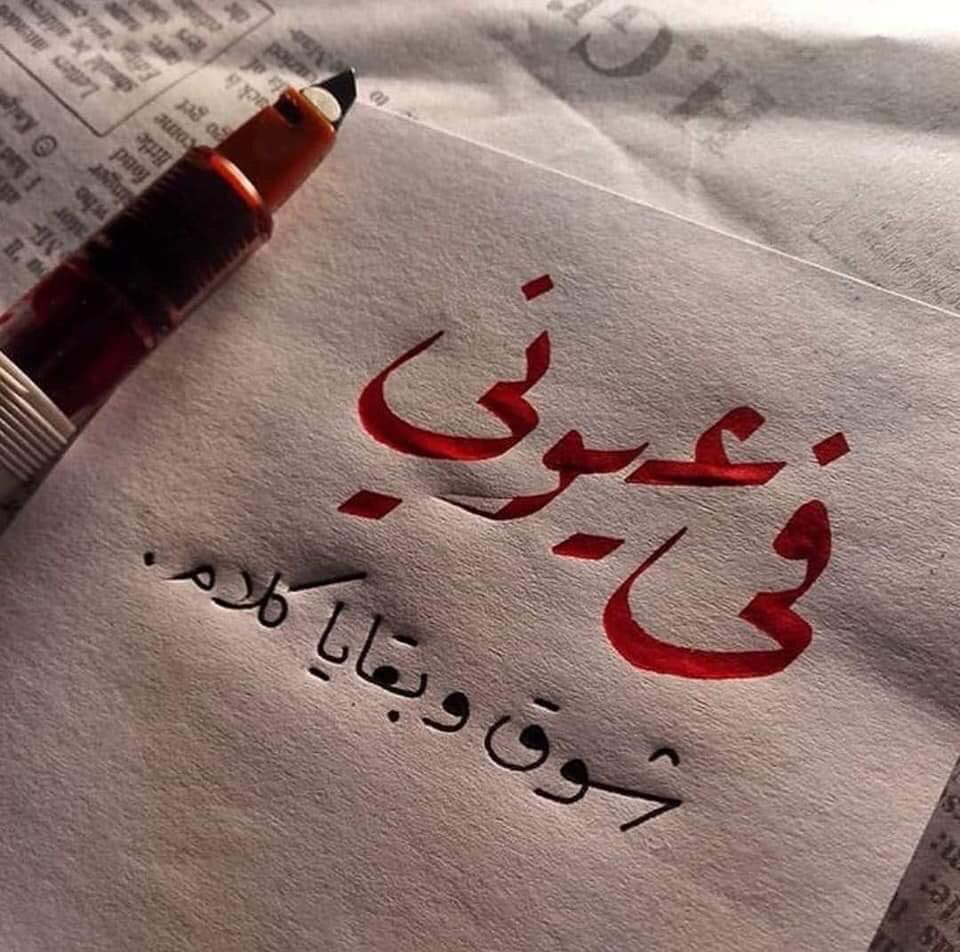 في عيوني
شوق وبقايا كلام.